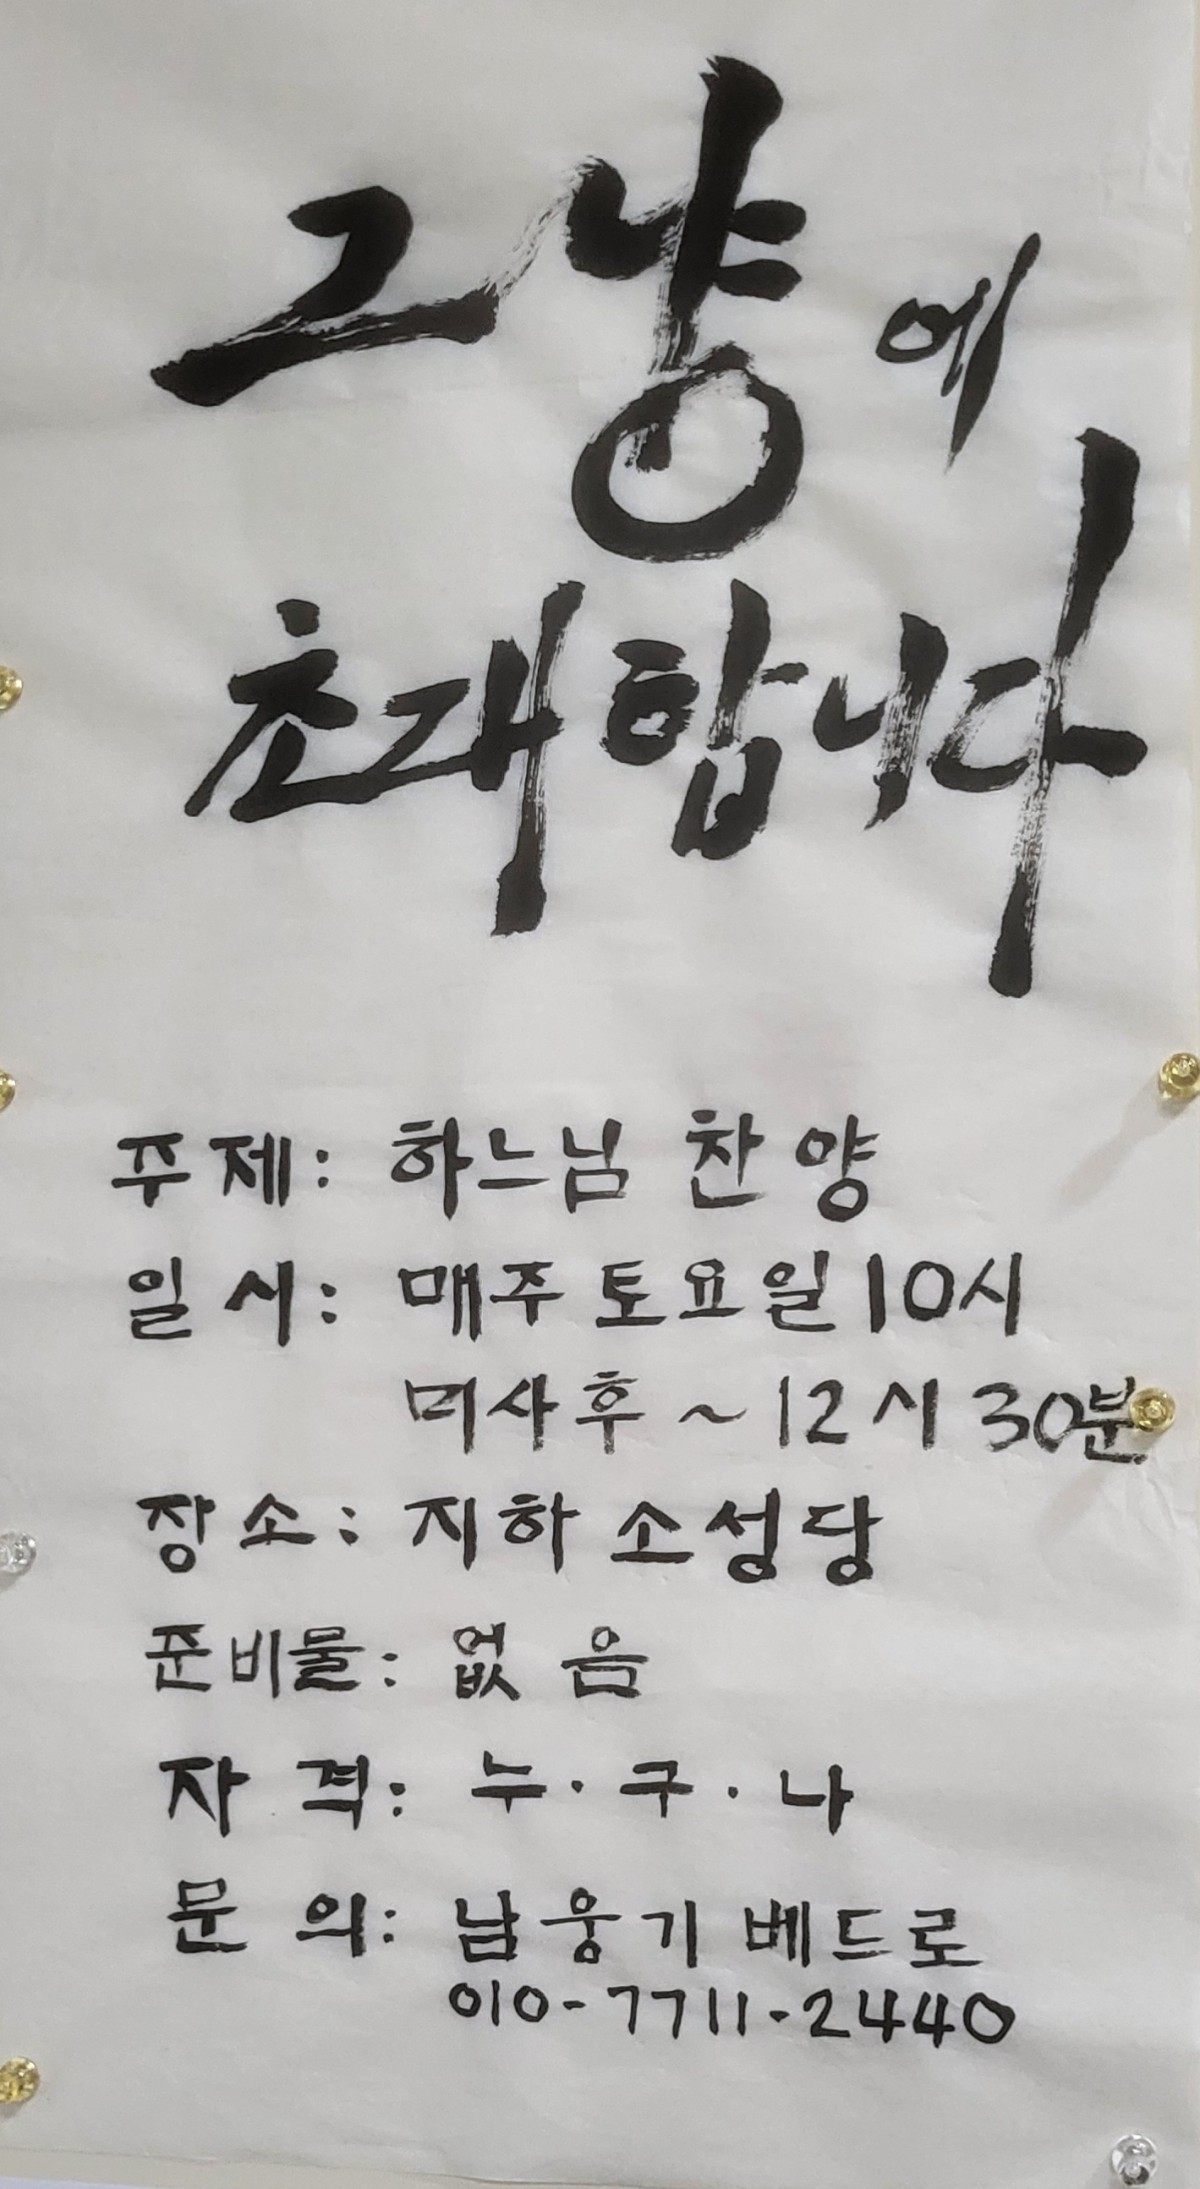 그냥에
초대합니다
주제: 하느님 찬양
일시: 매주 토요일 10시
미사후 ~ 12시 30분
장소: 지하 소성당
준비물: 없음
자격: 누·구·나
문의: 남웅기 베드로
010-7711-2440